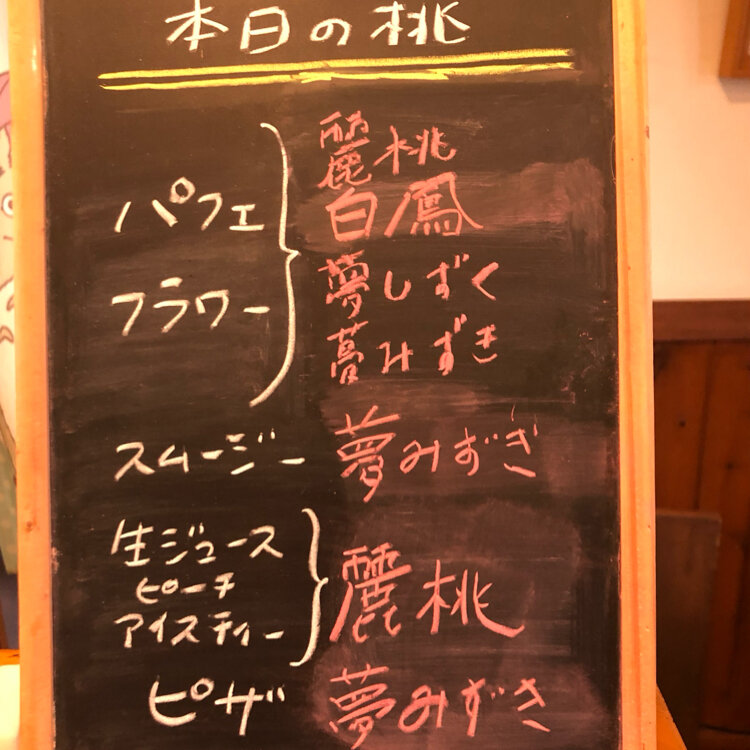 本日の桃
パフェ
フラワー
麗桃
白鳳
夢しずく
夢みずき
スムージー 夢みずき
生ジュース
ピーチ
アイスティー
麗桃
ピザ 夢みずき